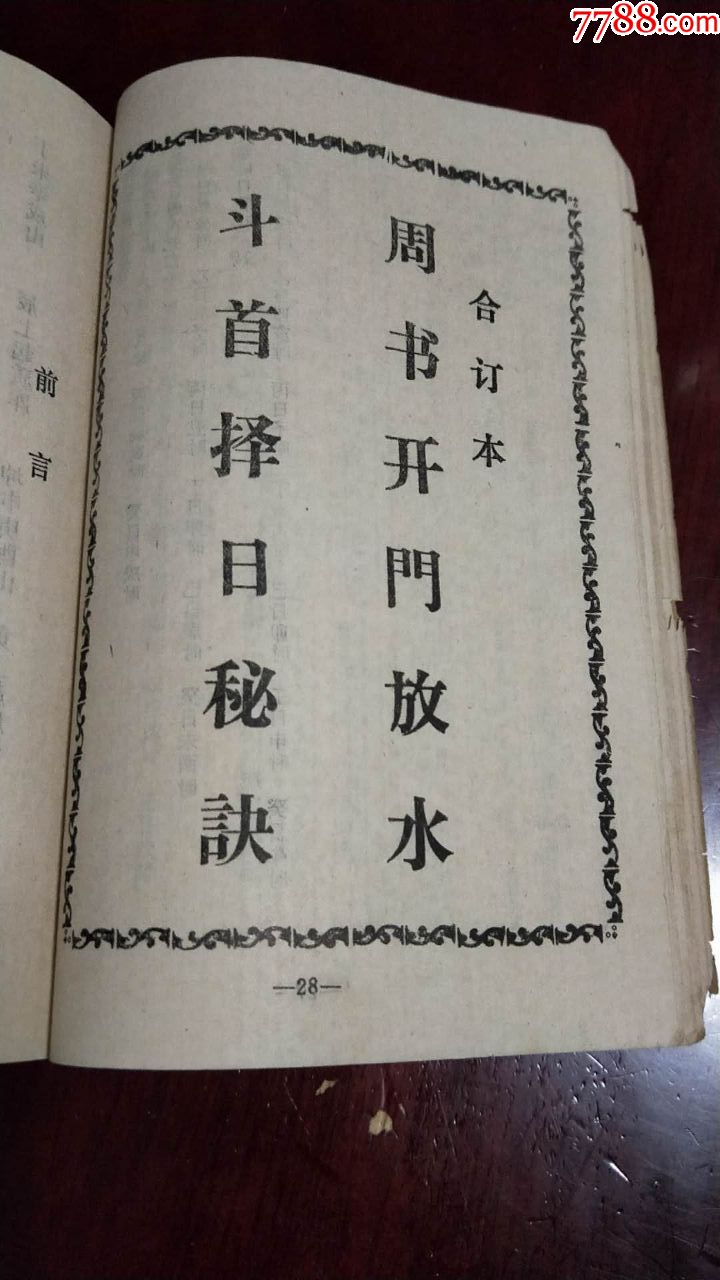 7788.com
合订本
周书开門放水
斗首择日秘訣
—28—
前言